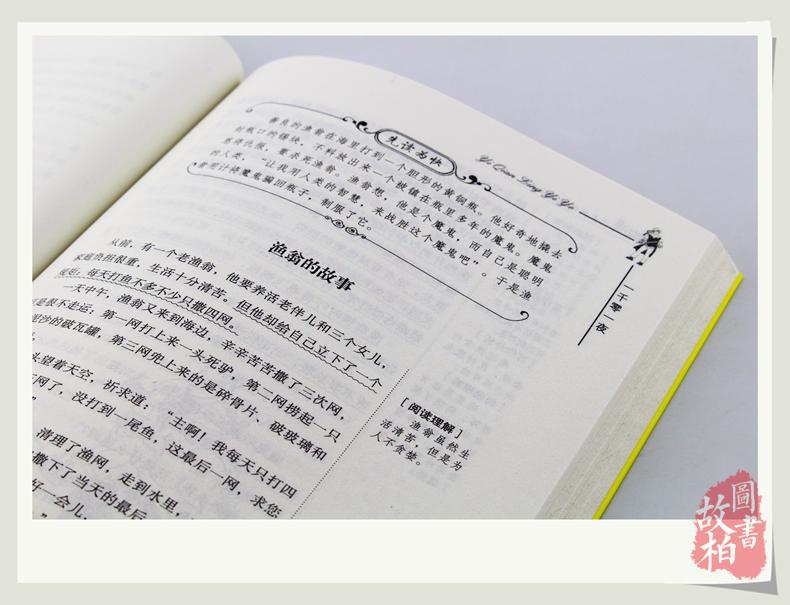 先读为快
善良的渔翁在海里打到一个胆形的黄铜瓶。他好奇地撬去
封瓶口的锡块，不料放出来一个被镇在瓶里多年的魔鬼。魔鬼
恩将仇报，要杀死渔翁。渔翁想，他是个魔鬼，而自己是聪明
的人类，“让我用人类的智慧，来战胜这个魔鬼吧”。于是渔
翁想计将魔鬼骗回瓶子，制服了它。
Yi Qian Ling Yi Ye
一千零一夜
渔翁的故事
从前，有一个老渔翁，他要养活老伴儿和三个女儿，
家庭负担很重，生活十分清苦。但他却给自己立下了一个
规矩：每天打鱼不多不少只撒四网。
一天中午，渔翁又来到海边，辛辛苦苦撒了三次网，
是很不走运：第一网打上来一头死驴，第二网捞起一只
泥沙的破瓦罐，第三网兜上来的是碎骨片、破玻璃和
头望着天空，祈求道：“主啊！我每天只打四
网了，没打到一尾鱼，这最后一网，求您
”
清理了渔网，走到水里，
撒下了当天的最后
好一会儿，
”
[阅读理解]
渔翁虽然生
活清苦，但是为
人不贪婪。
故柏
圖書